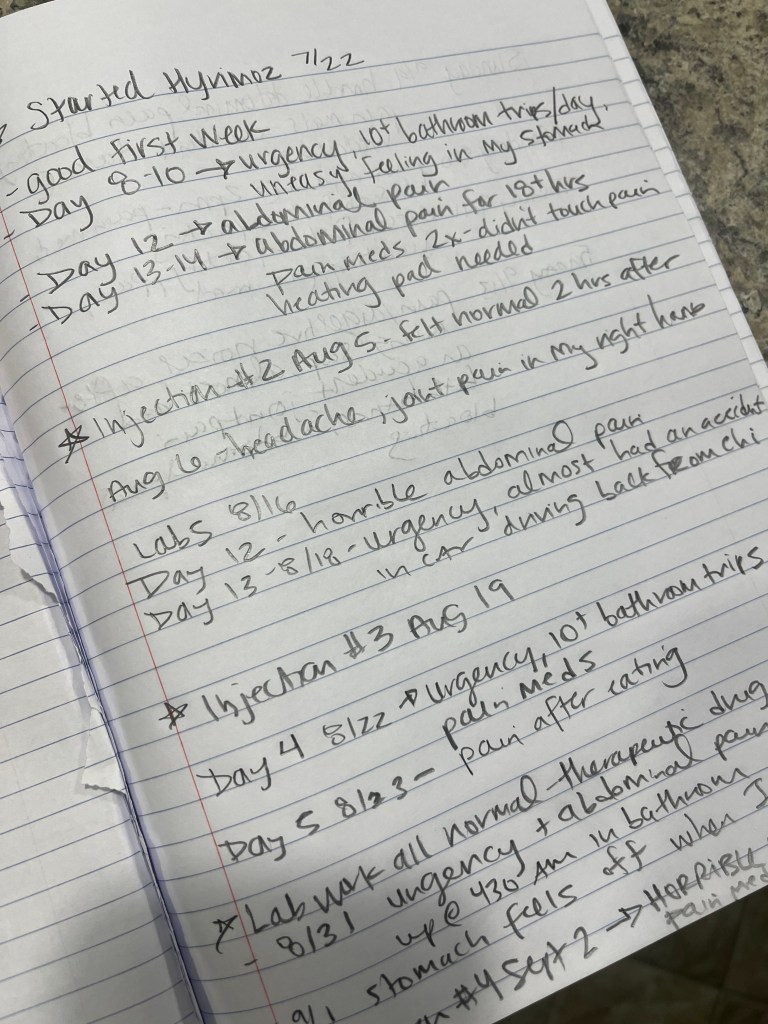 Started Hyrimoz 7/22
- good first week
- Day 8-10 → urgency, 10+ bathroom trips/day,
uneasy feeling in my stomach
- Day 12 → abdominal pain
- Day 13-14 → abdominal pain for 18+ hrs
pain meds 2x - didn't touch pain
heating pad needed
☆ Injection #2 Aug 5 - felt normal 2 hrs after
Aug 6 - headache, joint pain in my right hand
Labs 8/16
Day 12 - horrible abdominal pain
Day 13 - 8/18 - urgency, almost had an accident
in car driving back from chi
☆ Injection #3 Aug 19
Day 4 8/22 → urgency, 10+ bathroom trips
pain meds
Day 5 8/23 - pain after eating
☆ Lab work all normal - therapeutic drug
- 8/31 urgency + abdominal pain
up @ 430 AM in bathroom
9/1 stomach feels off when I
#4 Sept 2 → HORRIBLE
pain meds